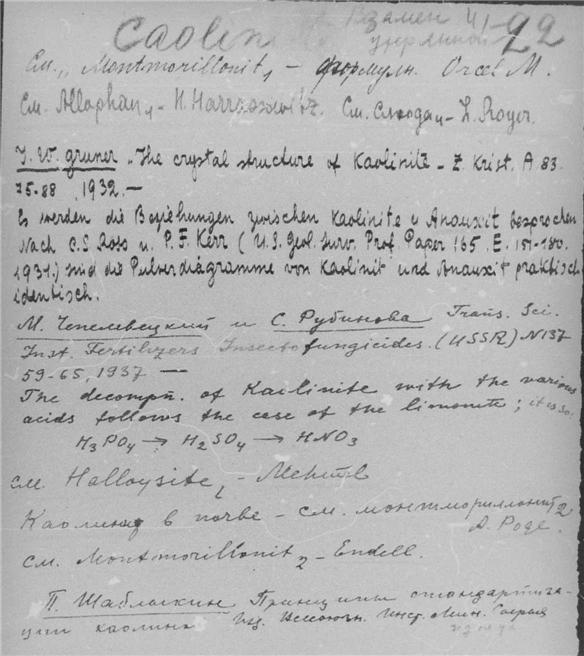 Caolin
Взамен
22
См. „Montmorillonit, – формулы. Orcel M.
См. Allophan, – H. Harrassowitz. См. Слюда, – L. Royer.
J. W. Gruner „The crystal structure of Kaolinite – Z. Krist. A 83.
75-88, 1932. —
Es werden die Beziehungen zwischen Kaolinite u Anauxit besprochen
Nach C.S. Ross u. P. F. Kerr (U.S. Geol. Surv. Prof. Paper 165. E. 151-180.
1931.) sind die Pulverdiagramme von Kaolinit und Anauxit praktisch
identisch.
М. Чепелевецкий и С. Рубинова Trans. Sci.
Inst. Fertilizers Insectofungicides. (USSR) N 137
59-65, 1937 —
The decompn. of Kaolinite with the various
acids follows the case of the limonite; it is so:
H₃PO₄ → H₂SO₄ → HNO₃
см. Halloysite, – Mehmel
Каолинит в почве – см. монтмориллонит 2
А. Роде.
см. Montmorillonit 2 – Endell.
П. Шаблыкин Принципы стандартиза-
ции каолина Изд. Всесоюзн. Инст. Мин. Сырья